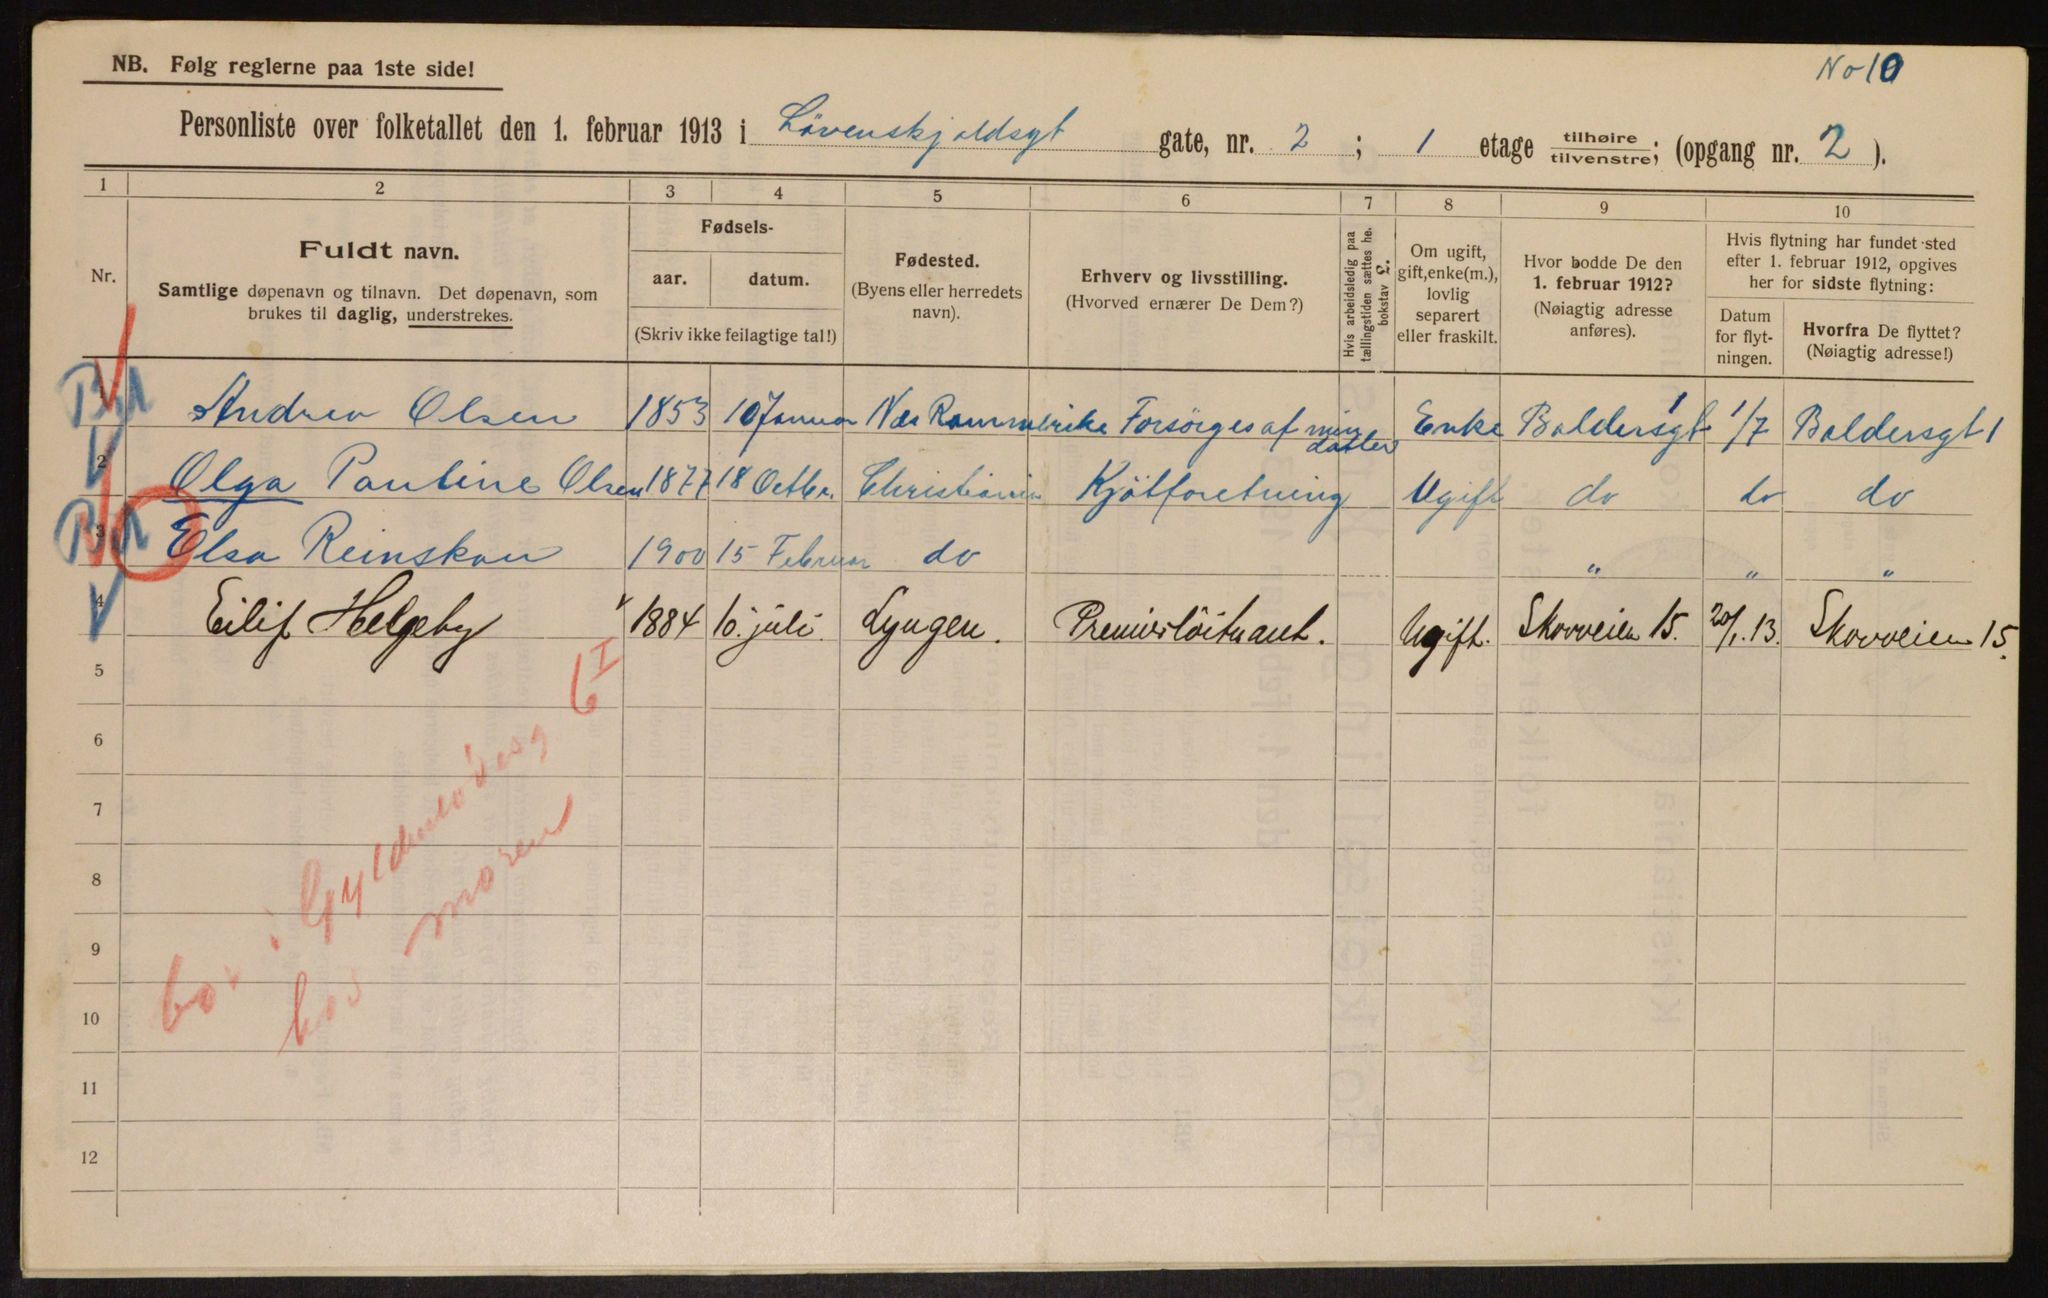 NB. Følg reglerne paa 1ste side!
No 10
Personliste over folketallet den 1. februar 1913 i Lövenskjoldsgt gate, nr. 2 ; 1 etage tilhøire/tilvenstre; (opgang nr. 2 ).
1 2 3 4 5 6 7 8 9 10
Nr.
Fuldt navn.
Samtlige døpenavn og tilnavn. Det døpenavn, som
brukes til daglig, understrekes.
Fødsels-
aar. datum.
(Skriv ikke feilagtige tal!)
Fødested.
(Byens eller herredets
navn).
Erhverv og livsstilling.
(Hvorved ernærer De Dem?)
Hvis arbeidsledig paa
tællingstiden sættes he.
bokstav £.
Om ugift,
gift, enke(m.),
lovlig
separert
eller fraskilt.
Hvor bodde De den
1. februar 1912?
(Nøiagtig adresse
anføres).
Hvis flytning har fundet sted
efter 1. februar 1912, opgives
her for sidste flytning:
Datum
for flyt-
ningen.
Hvorfra De flyttet?
(Nøiagtig adresse!)
1 Andrea Olsen 1853 10 Januar Næs Rommerike Forsörges af min datter Enke Baldersgt 1 1/7 Baldersgt 1
2 Olga Pauline Olsen 1877 18 Octbr. Christiania Kjötforetning Ugift do do do
3 Elsa Reinskou 1900 15 Februar do " " "
4 Eilif Helgeby 1884 10. juli. Lyngen. Premierløitnant. Ugift. Skovveien 15. 20/1. 13. Skovveien 15.
5
6
7
8
9
10
11
12
bor i Gyldenløvesg 6 I
hos moren